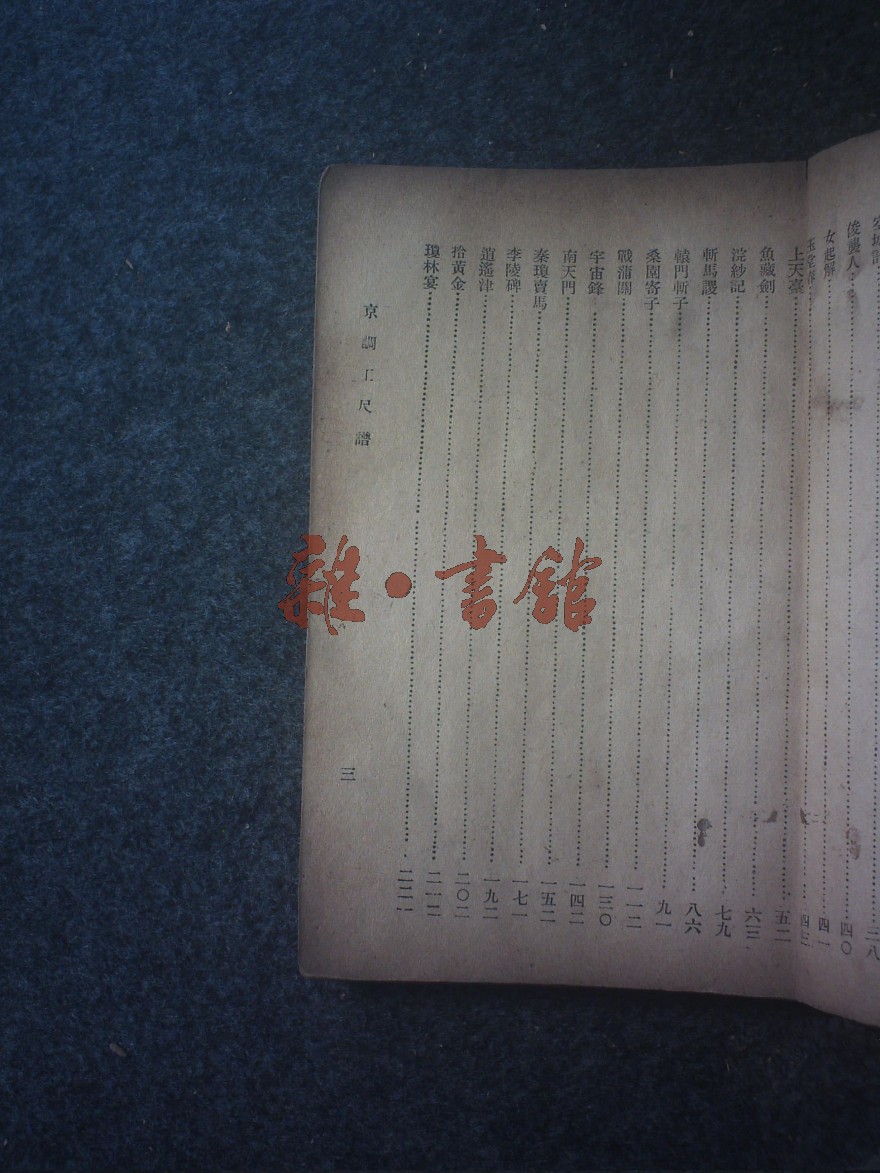 三八
俊襲人……四〇
女起解……四一
玉堂春……四三
上天臺……五二
魚藏劍……六三
浣紗記……七九
斬馬謖……八六
轅門斬子……九一
桑園寄子……一一二
戰蒲關……一三〇
宇宙鋒……一四二
南天門……一五二
秦瓊賣馬……一七一
李陵碑……一九二
逍遙津……二〇二
拾黃金……二一二
瓊林宴……二二一
京調工尺譜 三
雜·書館